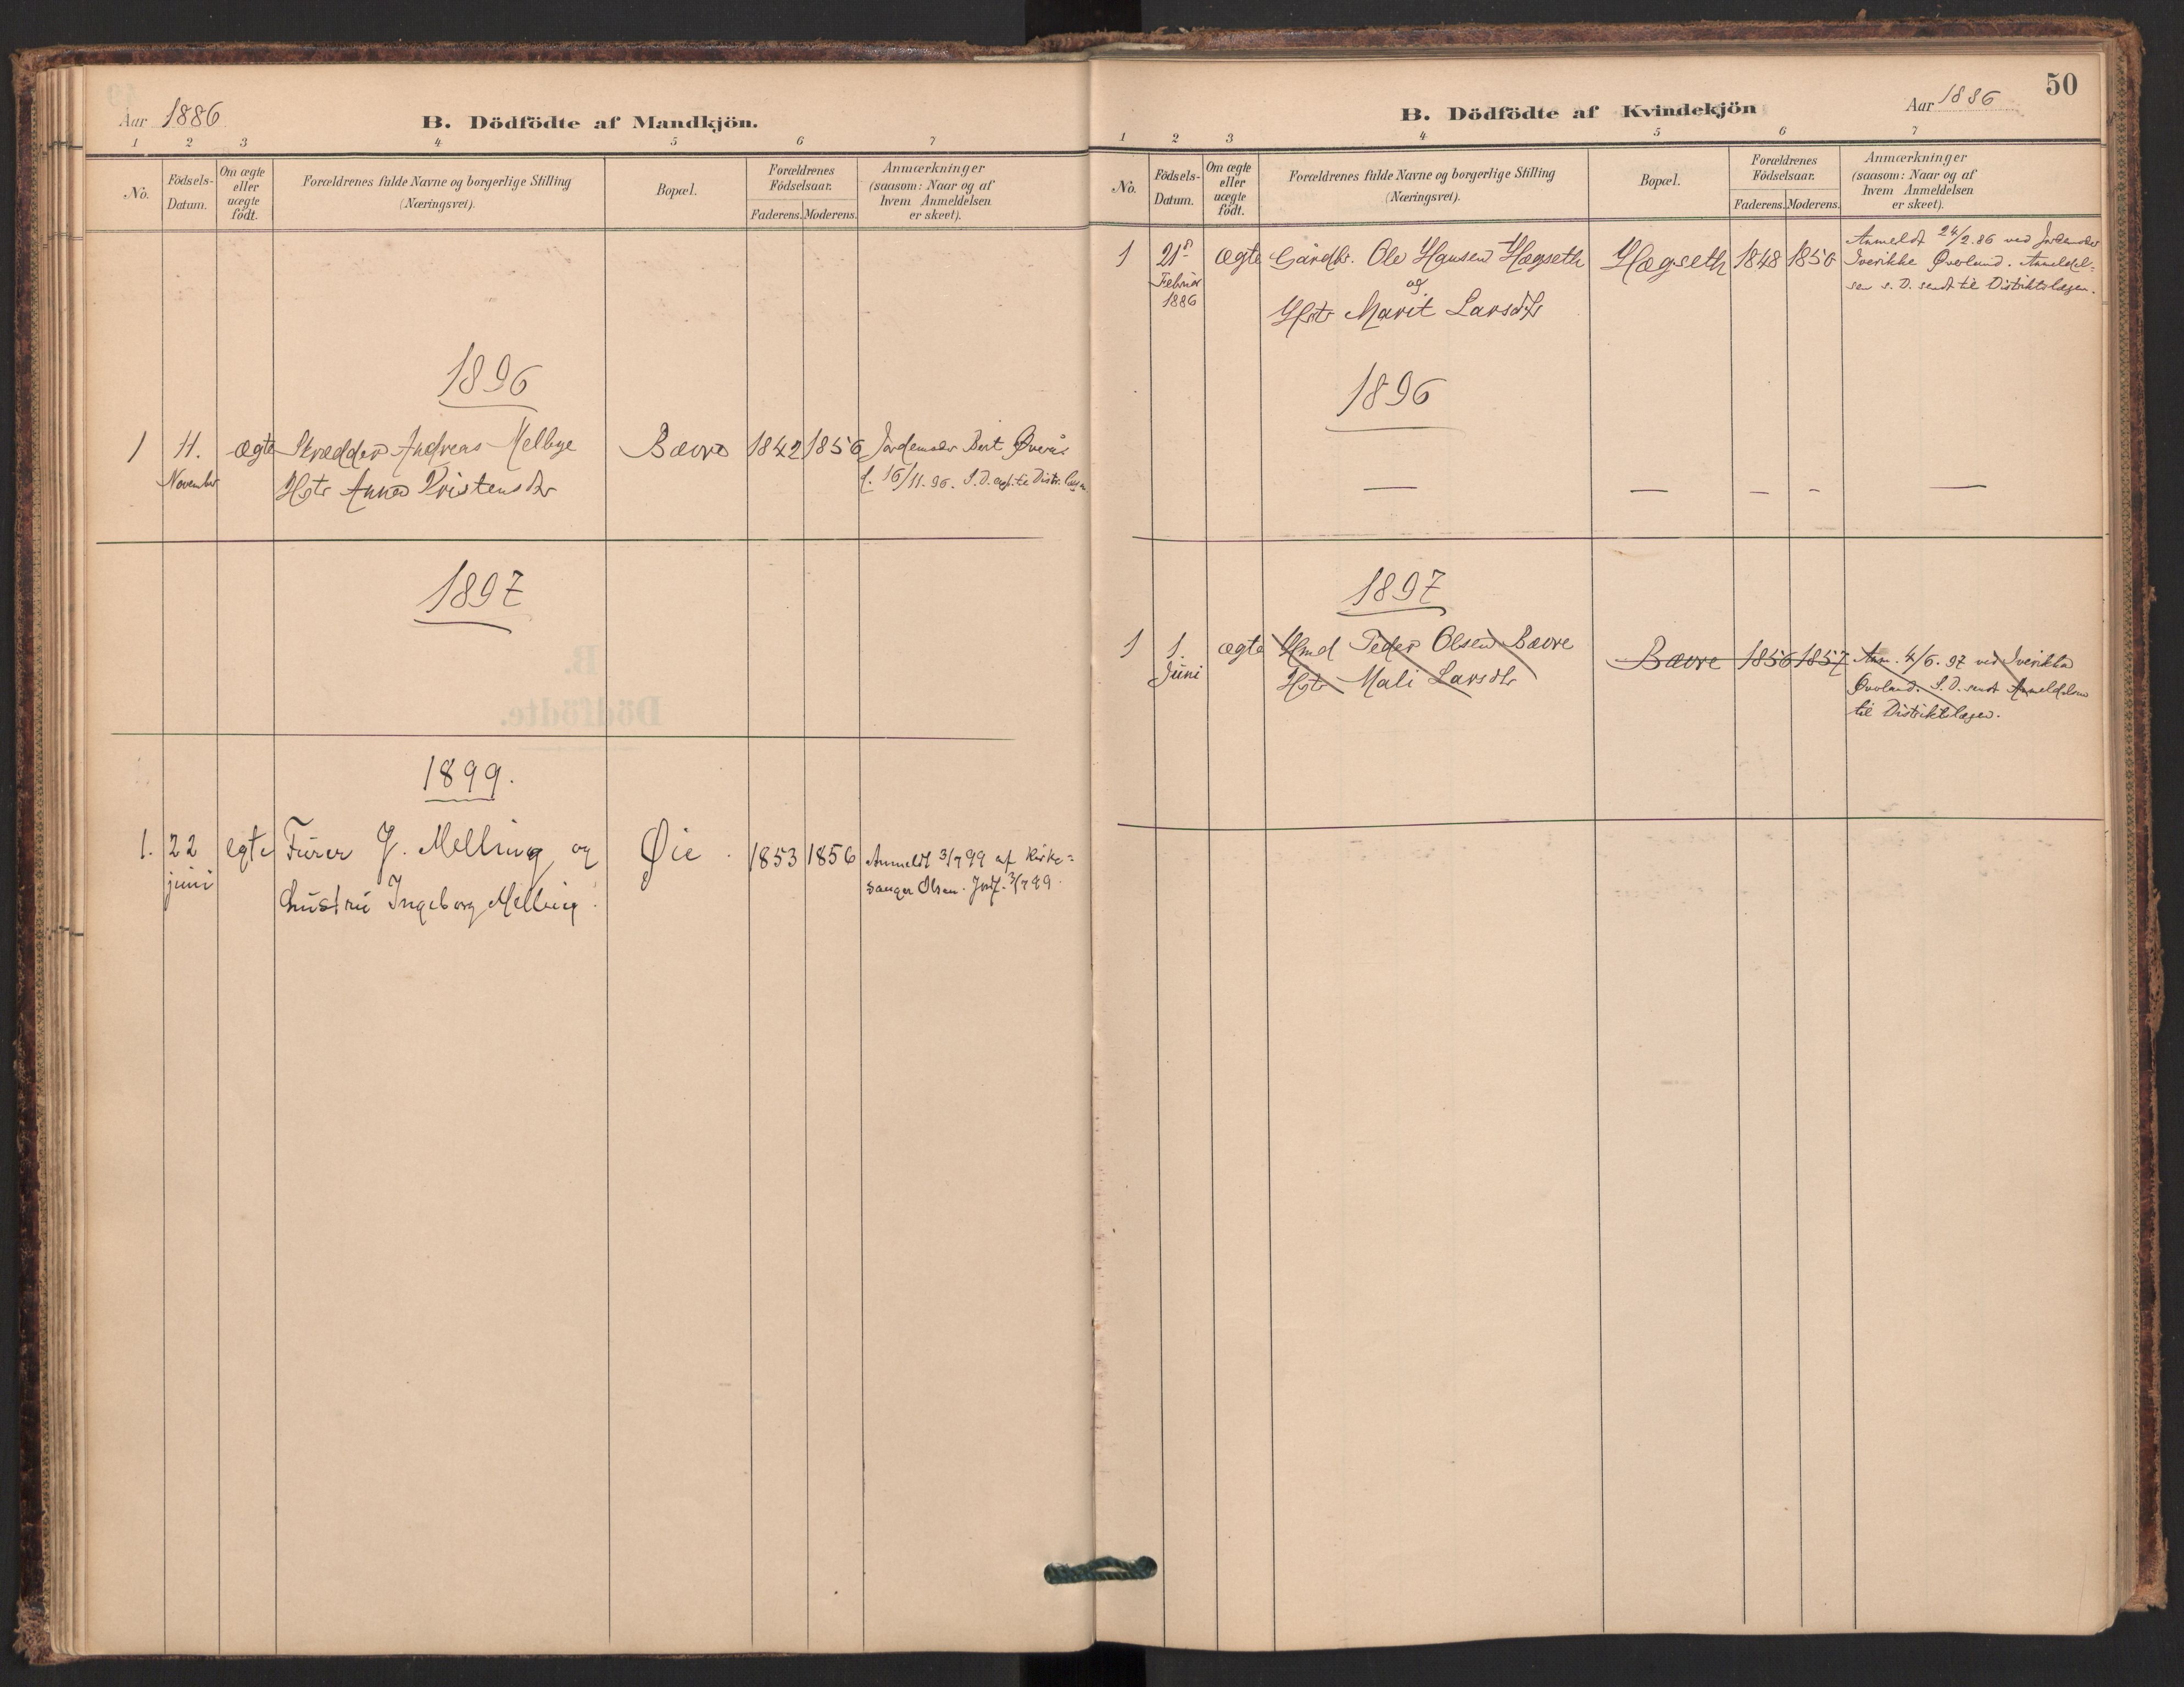 Aar 1886
B. Dödfödte af Mandkjön.
1 2 3 4 5 6 7
No.
Födsels-
Datum.
Om ægte
eller
uægte
födt.
Forældrenes fulde Navne og borgerlige Stilling
(Næringsvei).
Bopæl.
Forældrenes
Födselsaar.
Faderens. Moderens.
Anmærkninger
(saasom: Naar og af
hvem Anmeldelsen
er skeet).
1896
1 11. ægte Skrædder Andreas Melbye Bævre 1842 1856 Jordemoder Berit Øverås
November Hstr Anne Kristensdtr 16/11. 96. S.D. til Distr. lægen
1897
1899.
1. 22 egte Furer J. Melbring og Øie. 1853 1856 Anmeldt 3/7 99 af Kirke=
juni hustru Ingeborg Melbring. sanger Olsen. 3/7 99.
50
Aar 1886
B. Dödfödte af Kvindekjön
1 2 3 4 5 6 7
No.
Födsels-
Datum.
Om ægte
eller
uægte
födt.
Forældrenes fulde Navne og borgerlige Stilling
(Næringsvei).
Bopæl.
Forældrenes
Födselsaar.
Faderens. Moderens.
Anmærkninger
(saasom: Naar og af
hvem Anmeldelsen
er skeet).
1 21de ægte Gårdbr. Ole Hansen Hægseth Hægseth 1848 1850 Anmeldt 24/2.86 ved Jordemoder
Februar og Iverikke Øverland. Anmeldel=
1886 Hstr Marit Larsdtr sen s. D. sendt til Distriktslægen.
1896
— — — — —
1897
1 1. ægte Hmd Peder Olsen Bævre Bævre 1856 1857 Anm. 4/6. 97 ved Iverikka
Juni Hstr Mali Larsdtr Øverland. S.D. sendt Anmeldelsen
til Distriktslægen.